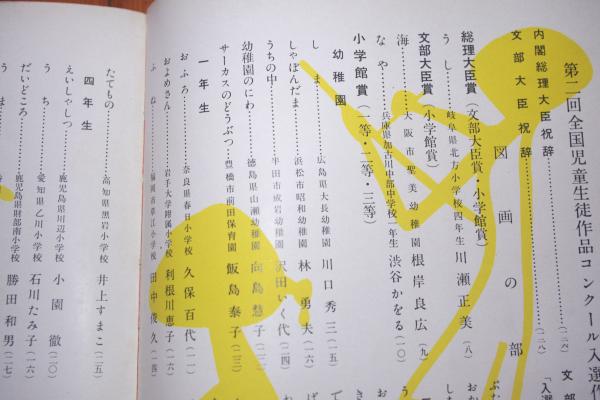 第二回全国児童生徒作品コンクール入選作
内閣総理大臣祝辞……(二六)
文部大臣祝辞……(二八)
図画の部
総理大臣賞(文部大臣賞・小学館賞)
うし……岐阜県北方小学校四年生 川瀬正美(八)
文部大臣賞(小学館賞)
海……大阪市聖美幼稚園 根岸良広(九)
なや……兵庫県加古川中部中学校一年生 渋谷かをる(一〇)
小学館賞(一等・二等・三等)
幼稚園
しま……広島県大長幼稚園 川口秀三(一五)
しゃぼんだま……浜松市昭和幼稚園 林勇夫(一六)
うちの中……半田市成岩幼稚園 沢田いく代(一四)
幼稚園のにわ……徳島県山瀬幼稚園 向島慧子(一三)
サーカスのどうぶつ……豊橋市前田保育園 飯島泰子(一三)
一年生
おふろ……奈良県春日小学校 久保百代(一一)
およめさん……岩手大学附属小学校 利根川恵子(一六)
ふね……福岡市草江小学校 田中俊久(一四)
たてもの……高知県黒岩小学校 井上すまこ(二五)
四年生
えいしゃしつ……鹿児島県川辺小学校 小園徹(二〇)
うち……愛知県乙川小学校 石川たみ子(一六)
だいどころ……鹿児島県財部南小学校 勝田和男(二七)
うま